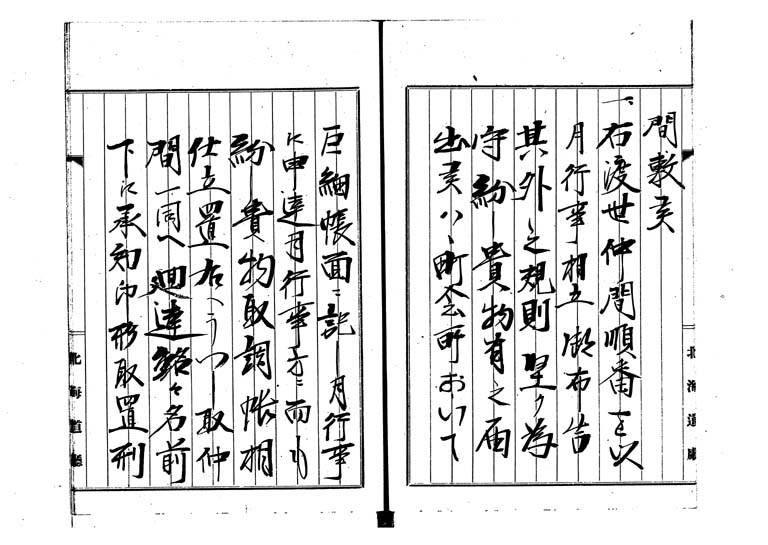 間敷事
一、右渡世仲間順番を以
月行事相立御布告
其外之規則堅ク為
守紛シ貴物有之届
出事ハ、町会所おいて
巨細帳面ニ記シ月行事
に申達月行事方ニ而も
紛シ貴物取調帳相
仕立置右へうつし取仲
間一同へ廻達銘々名前
下に承知印形取置刑
北海道廳
北海道廳